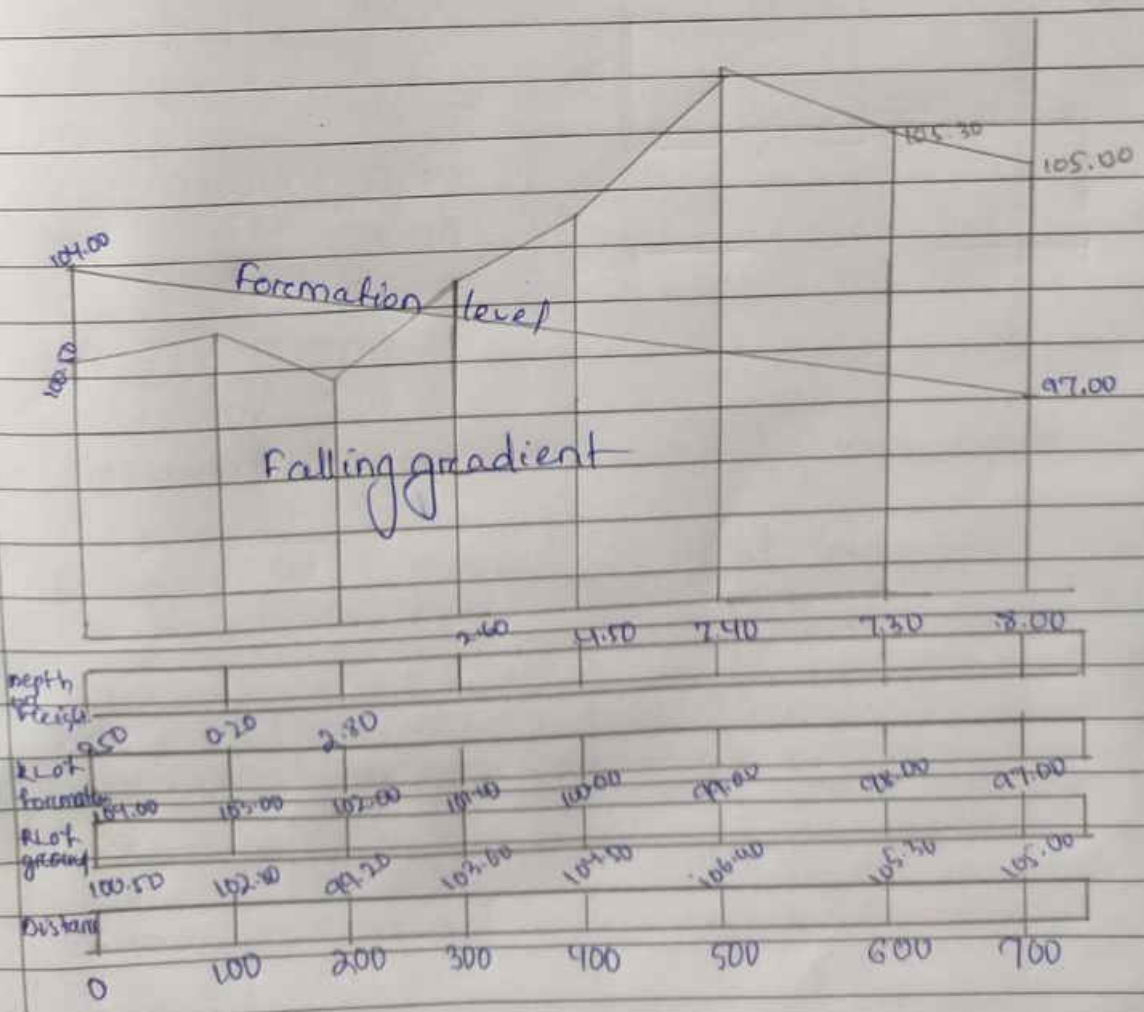 105.30
105.00
104.00
Formation level
100.50
97.00
Falling gradient
2.60 4.50 7.40 7.30 8.00
Depth
Height
350 0.20 2.80
RL of
formation 104.00 103.00 102.00 100.00 99.00 98.00 97.00
RL of
ground
100.50 102.80 99.20 103.60 104.50 106.40 105.30 105.00
Distan
0 100 200 300 400 500 600 700